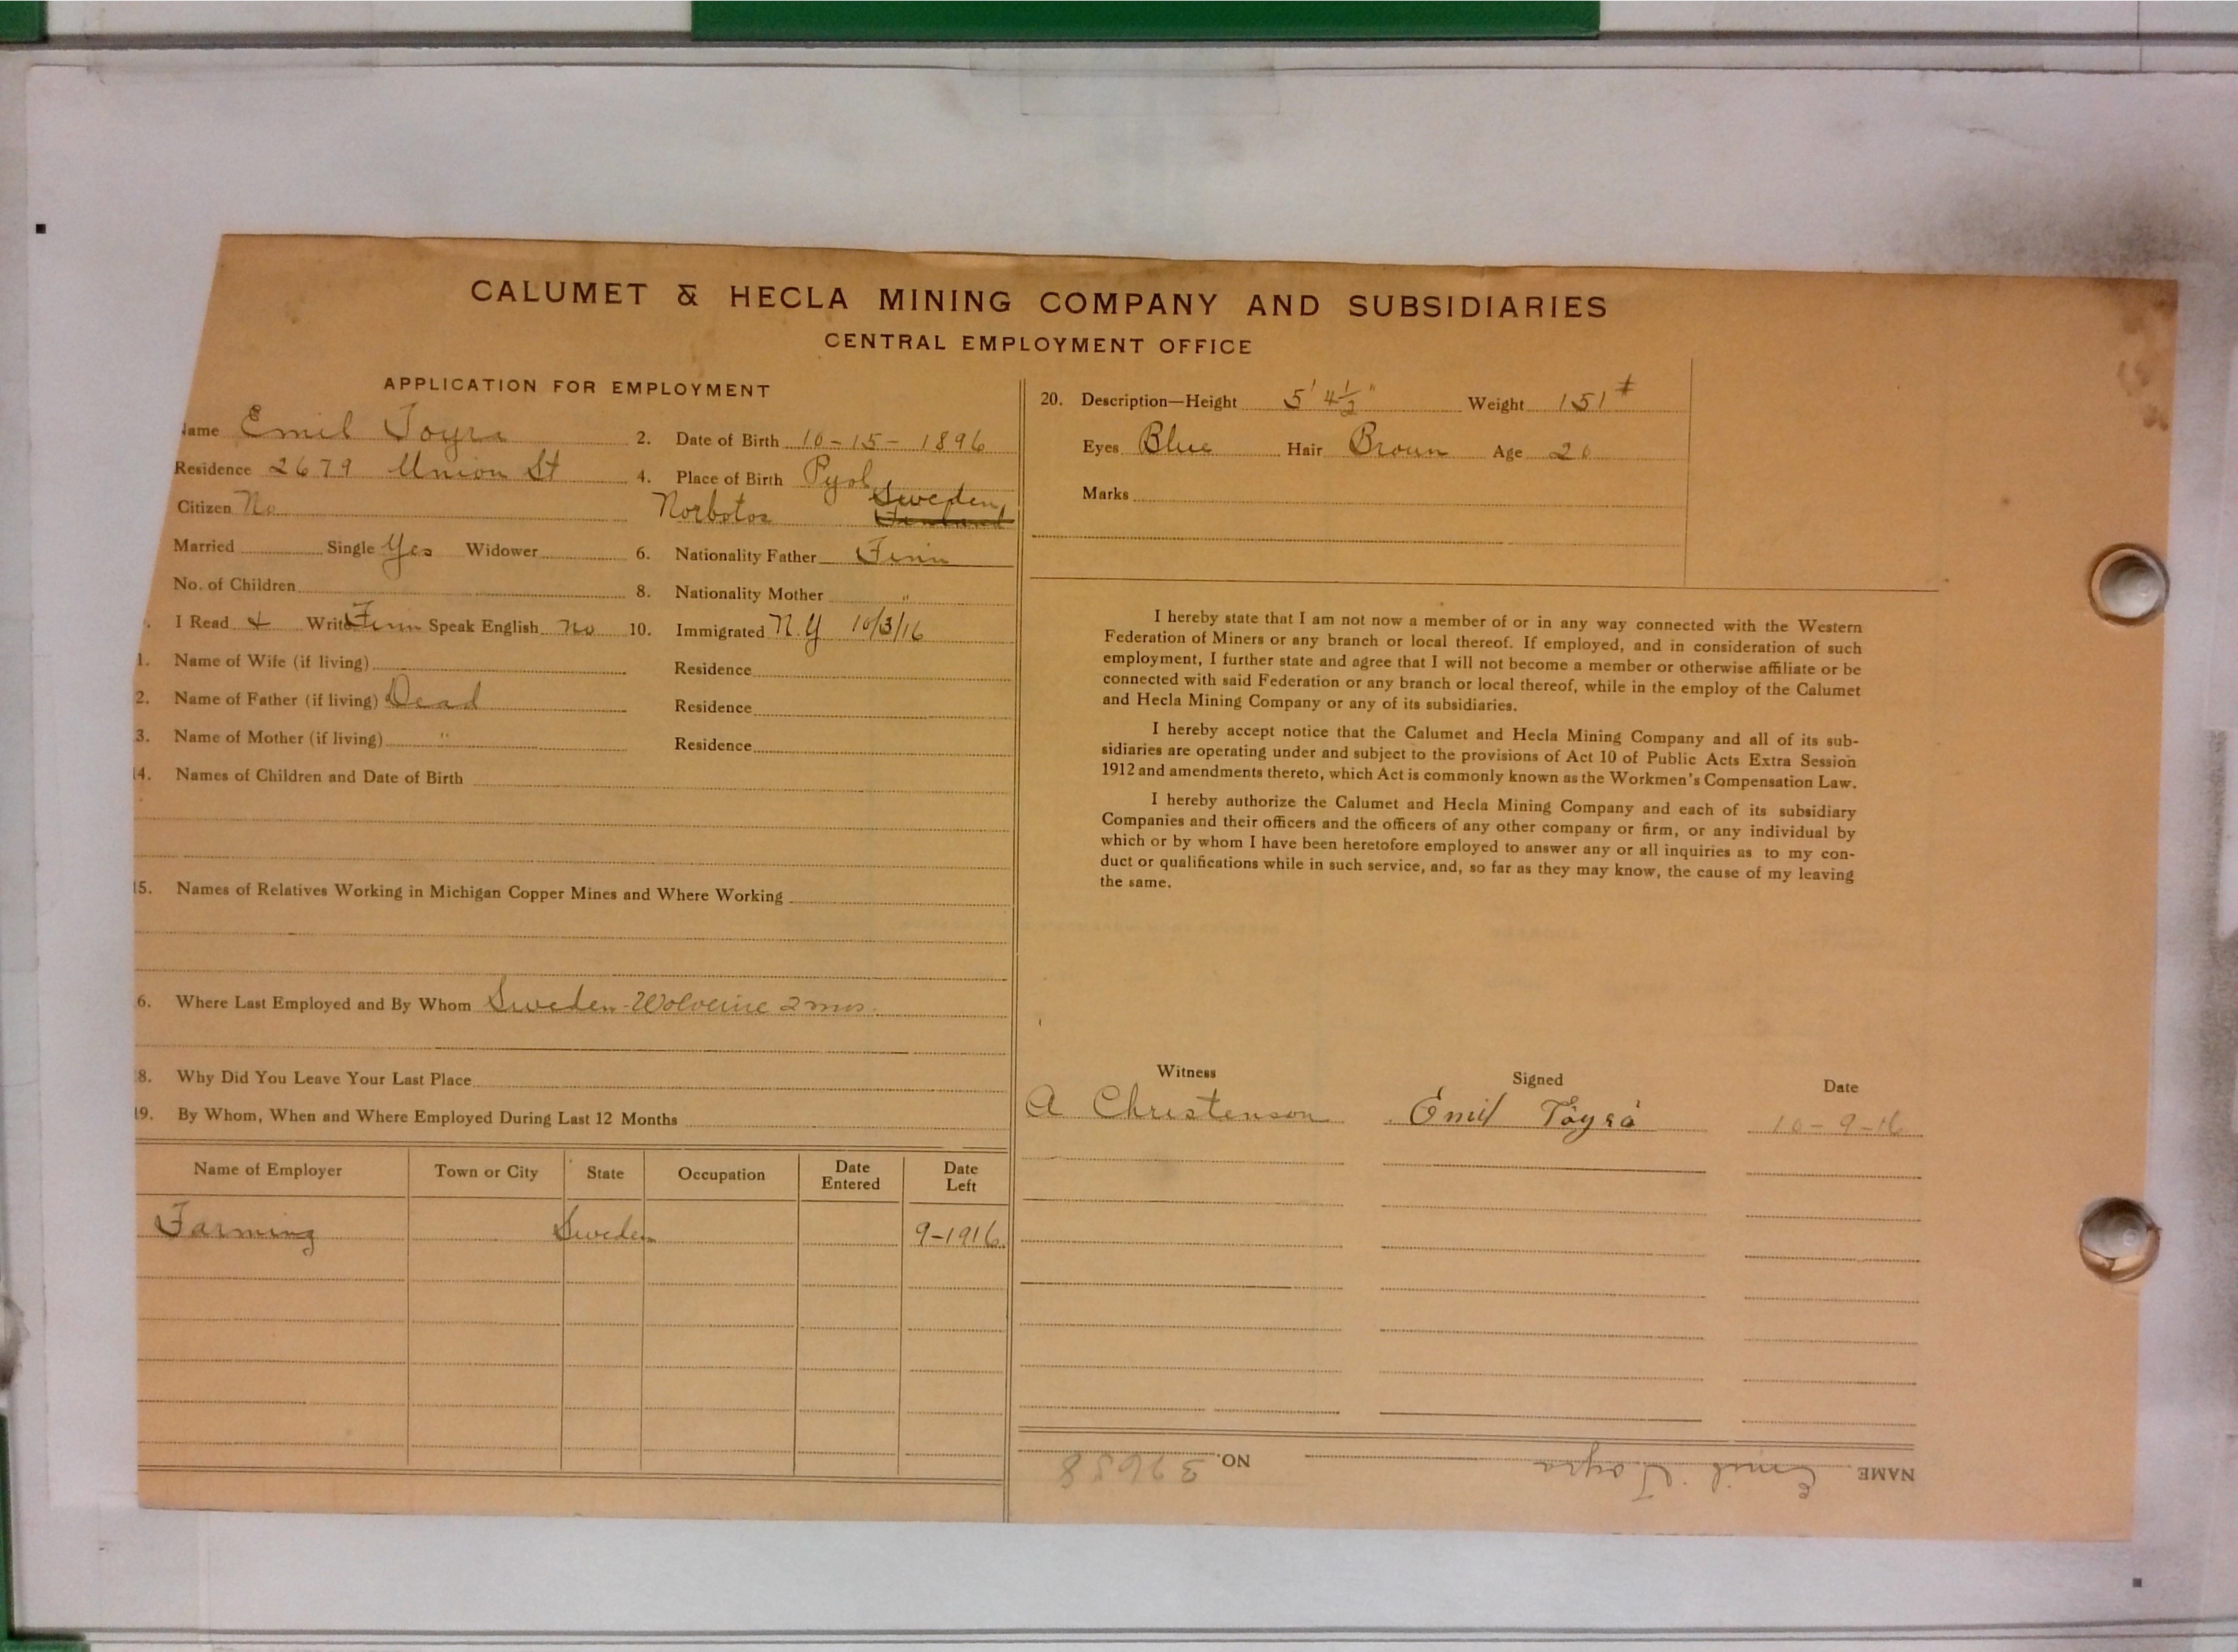 CALUMET & HECLA MINING COMPANY AND SUBSIDIARIES
CENTRAL EMPLOYMENT OFFICE
APPLICATION FOR EMPLOYMENT
Name Emil Toyra 2. Date of Birth 10-15-1896
Residence 2679 Union St 4. Place of Birth Pyol
Citizen No Norbotos Sweden, Finland
Married Single Yes Widower 6. Nationality Father Finn
No. of Children 8. Nationality Mother "
I Read & Write Finn Speak English no 10. Immigrated N.Y 10/3/16
1. Name of Wife (if living) Residence
2. Name of Father (if living) Dead Residence
3. Name of Mother (if living) " Residence
14. Names of Children and Date of Birth
15. Names of Relatives Working in Michigan Copper Mines and Where Working
6. Where Last Employed and By Whom Sweden-Wolverine 2 mos.
8. Why Did You Leave Your Last Place
19. By Whom, When and Where Employed During Last 12 Months
Name of Employer Town or City State Occupation Date Entered Date Left
Farming Sweden 9-1916
20. Description—Height 5' 4½" Weight 151#
Eyes Blue Hair Broun Age 20
Marks
I hereby state that I am not now a member of or in any way connected with the Western
Federation of Miners or any branch or local thereof. If employed, and in consideration of such
employment, I further state and agree that I will not become a member or otherwise affiliate or be
connected with said Federation or any branch or local thereof, while in the employ of the Calumet
and Hecla Mining Company or any of its subsidiaries.
I hereby accept notice that the Calumet and Hecla Mining Company and all of its sub-
sidiaries are operating under and subject to the provisions of Act 10 of Public Acts Extra Session
1912 and amendments thereto, which Act is commonly known as the Workmen's Compensation Law.
I hereby authorize the Calumet and Hecla Mining Company and each of its subsidiary
Companies and their officers and the officers of any other company or firm, or any individual by
which or by whom I have been heretofore employed to answer any or all inquiries as to my con-
duct or qualifications while in such service, and, so far as they may know, the cause of my leaving
the same.
Witness Signed Date
A Christenson Emil Töyrä 10-9-16
NAME Emil Toyra NO. 32658